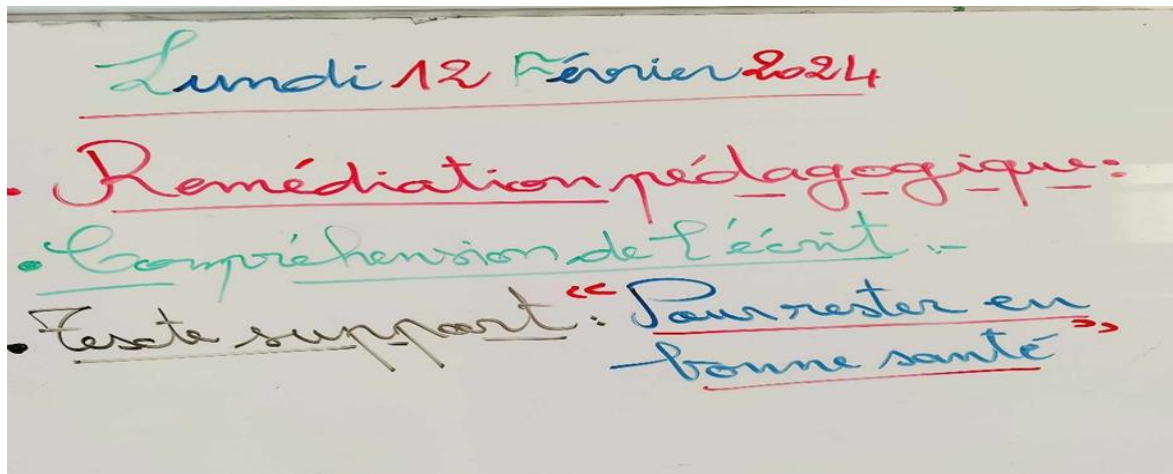 Lundi 12 Février 2024
. Remédiation pédagogique :
. Compréhension de l'écrit :-
. Texte support : "Pour rester en
bonne santé"